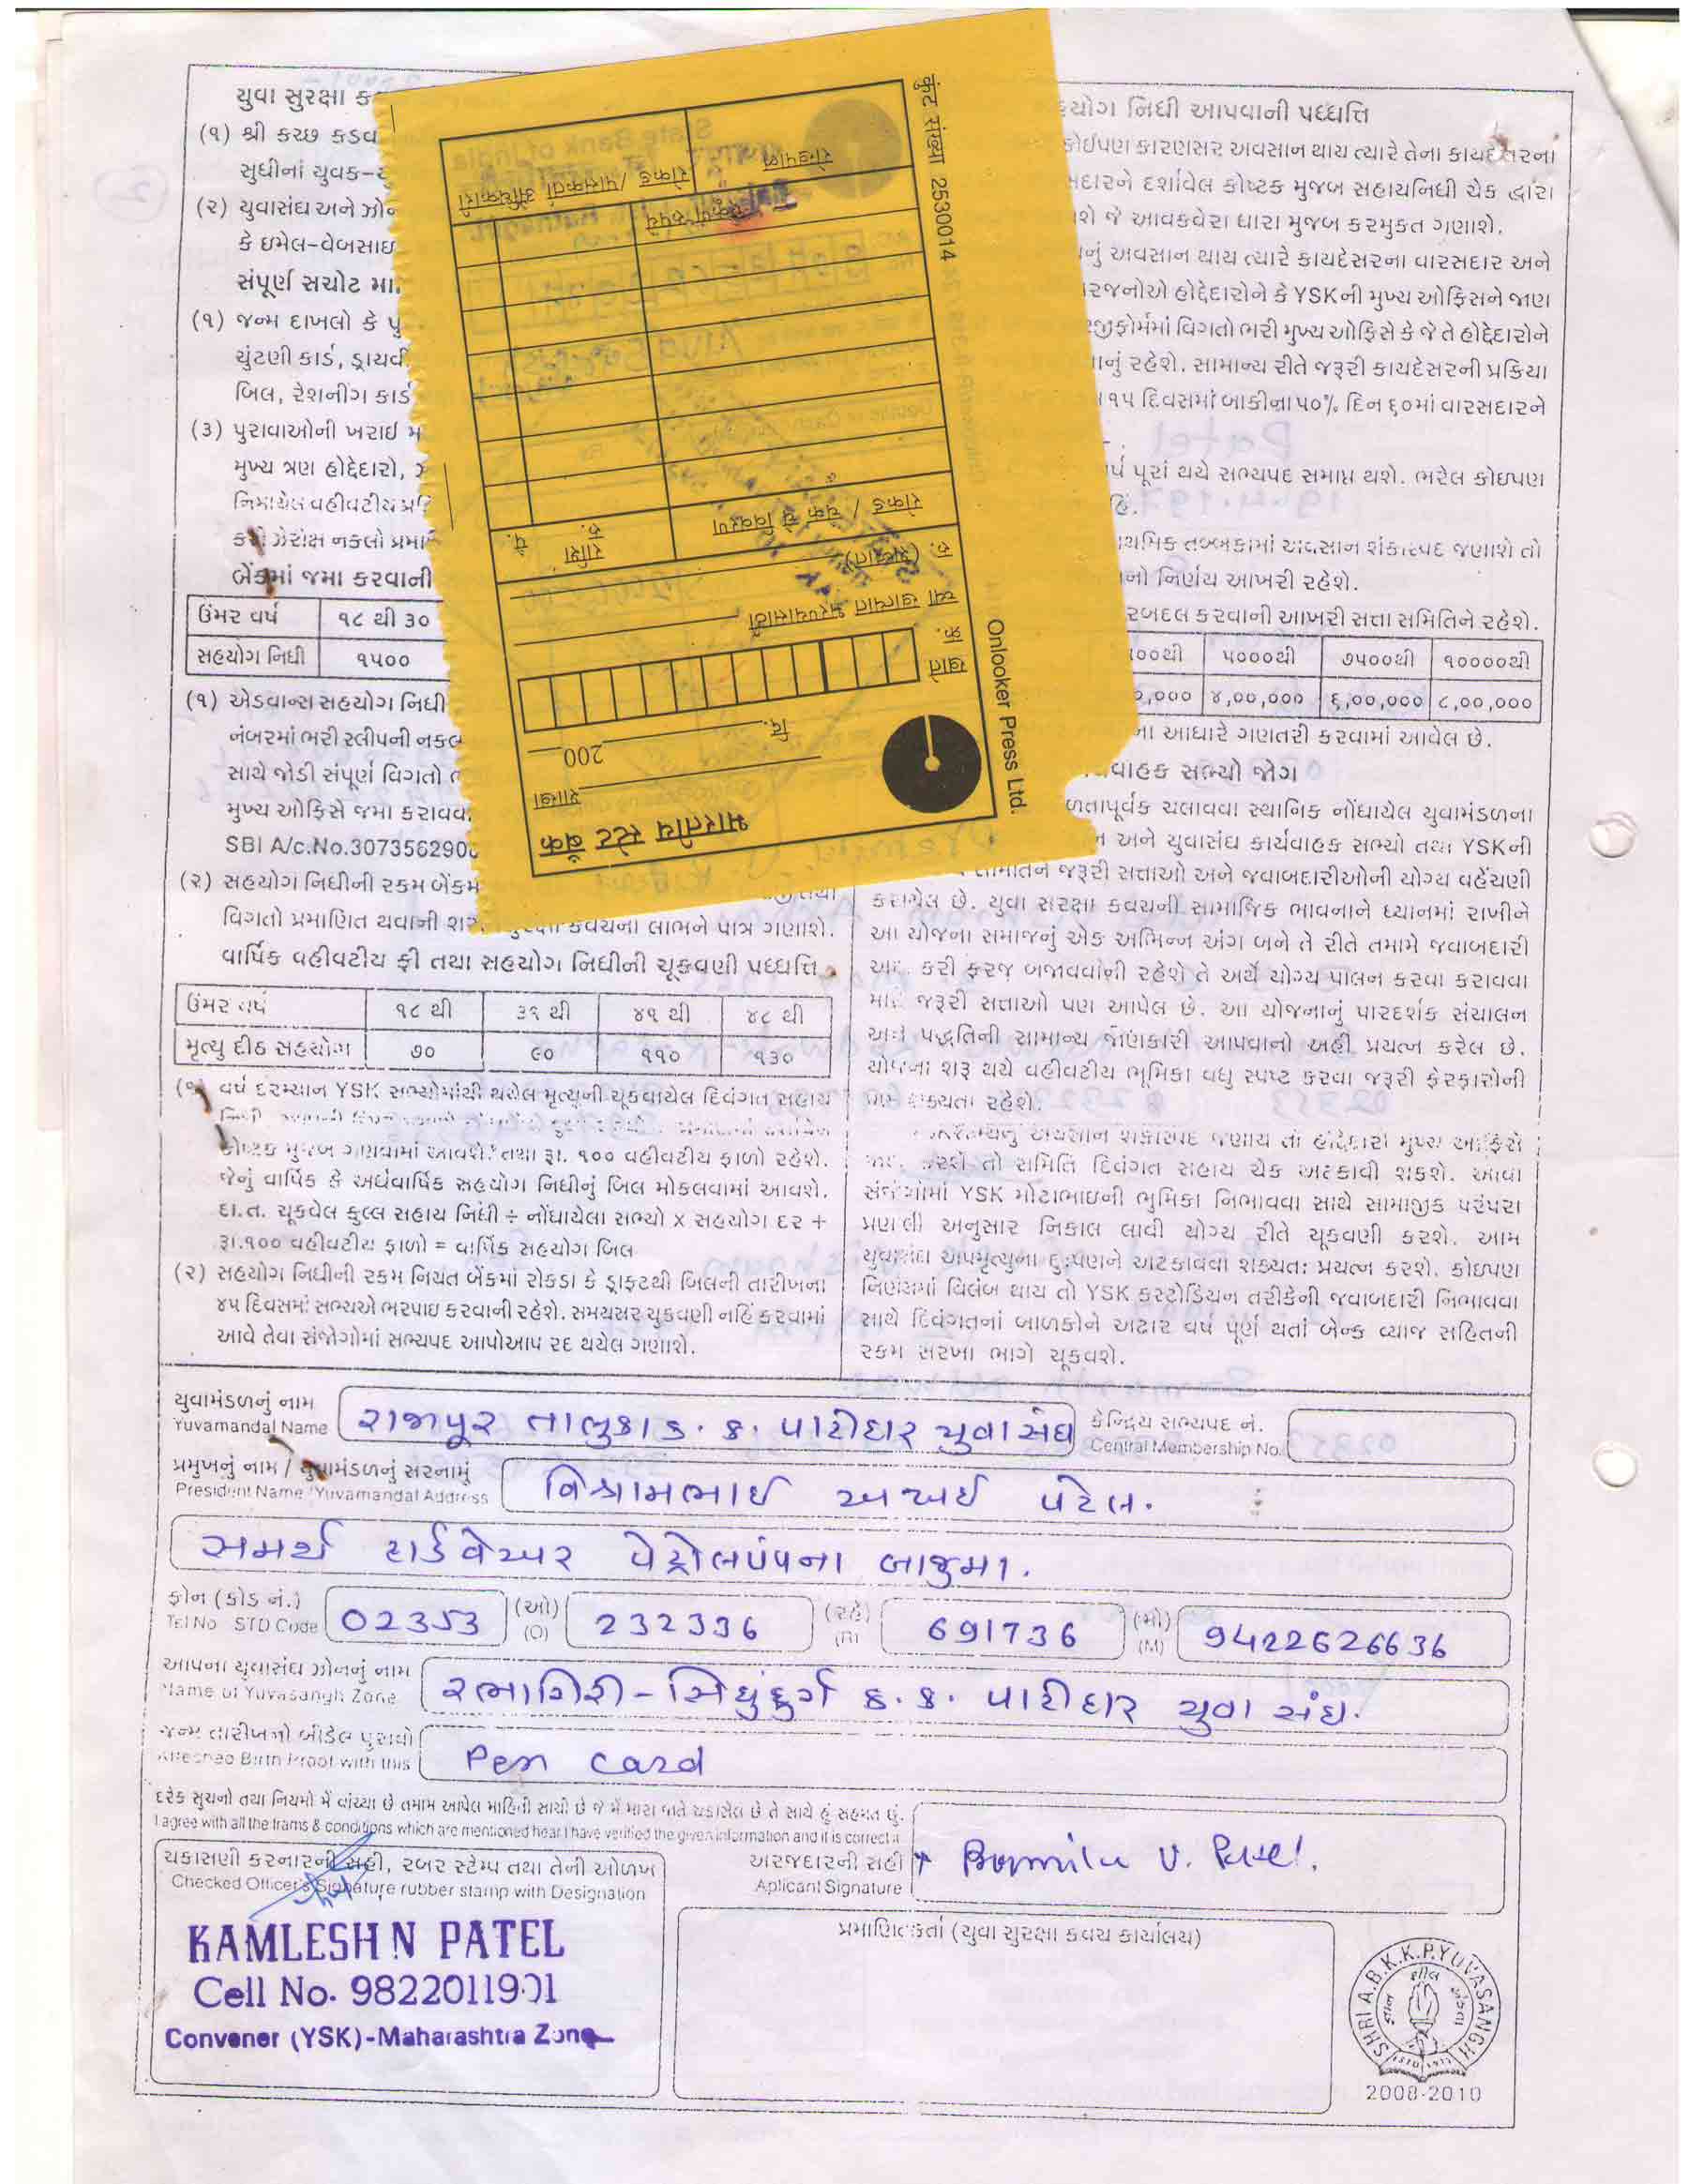 યુવા સુરક્ષા ક
(૧) શ્રી કચ્છ કડવ
સુધીનાં યુવક-
(૨) યુવાસંઘ અને ઝોન
કે ઇમેલ-વેબસાઇ
સંપૂર્ણ સચોટ મા
(૧) જન્મ દાખલો કે પુ
ચુંટણી કાર્ડ, ડ્રાયવી
બિલ, રેશનીંગ કાર્ડ
(૩) પુરાવાઓની ખરાઈ મ
મુખ્ય ત્રણ હોદ્દેદારો,
નિમાયેલ વહીવટીય પ્ર
ઝેરોક્ષ નકલો પ્રમા
બેંકમાં જમા કરવાની
ઉંમર વર્ષ ૧૮ થી ૩૦
સહયોગ નિધી ૧૫૦૦
(૧) એડવાન્સ સહયોગ નિધી
નંબરમાં ભરી સ્લીપની નકલ
સાથે જોડી સંપૂર્ણ વિગતો
મુખ્ય ઓફિસે જમા કરાવવ
SBI A/c.No.307356290
(૨) સહયોગ નિધીની રકમ બેંકમ
વિગતો પ્રમાણિત થવાની શર કવચના લાભને પાત્ર ગણાશે.
વાર્ષિક વહીવટીય ફી તથા સહયોગ નિધીની ચૂકવણી પધ્ધતિ
ઉંમર વર્ષ ૧૮ થી ૩૧ થી ૪૧ થી ૪૮ થી
મૃત્યુ દીઠ સહયોગ ૭૦ ૯૦ ૧૧૦ ૧૩૦
(૧) વર્ષ દરમ્યાન YSK સભ્યોમાંથી થયેલ મૃત્યુની ચૂકવાયેલ દિવંગત સહાય
કોષ્ટક મુજબ ગણવામાં આવશે. તથા રૂા. ૧૦૦ વહીવટીય ફાળો રહેશે.
જેનું વાર્ષિક કે અર્ધવાર્ષિક સહયોગ નિધીનું બિલ મોકલવામાં આવશે.
દા.ત. ચૂકવેલ કુલ્લ સહાય નિધી ÷ નોંધાયેલા સભ્યો x સહયોગ દર +
રૂા.૧૦૦ વહીવટીય ફાળો = વાર્ષિક સહયોગ બિલ
(૨) સહયોગ નિધીની રકમ નિયત બેંકમાં રોકડા કે ડ્રાફટથી બિલની તારીખના
૪૫ દિવસમાં સભ્યએ ભરપાઇ કરવાની રહેશે. સમયસર ચુકવણી નહિં કરવામાં
આવે તેવા સંજોગોમાં સભ્યપદ આપોઆપ રદ થયેલ ગણાશે.
યોગ નિધી આપવાની પધ્ધતિ
કોઈપણ કારણસર અવસાન થાય ત્યારે તેના કાયદેસરના
સદારને દર્શાવેલ કોષ્ટક મુજબ સહાયનિધી ચેક દ્વારા
શે જે આવકવેરા ધારા મુજબ કરમુકત ગણાશે.
નું અવસાન થાય ત્યારે કાયદેસરના વારસદાર અને
રજનોએ હોદ્દેદારોને કે YSKની મુખ્ય ઓફિસને જાણ
જીફોર્મમાં વિગતો ભરી મુખ્ય ઓફિસે કે જે તે હોદ્દેદારોને
નું રહેશે. સામાન્ય રીતે જરૂરી કાયદેસરની પ્રક્રિયા
૧૫ દિવસમાં બાકીના ૫૦% દિન ૬૦માં વારસદારને
ર્ષ પૂરાં થયે સભ્યપદ સમાપ્ત થશે. ભરેલ કોઇપણ
હિ.
ાથમિક તબ્બકામાં અવસાન શંકાસ્પદ જણાશે તો
નો નિર્ણય આખરી રહેશે.
રબદલ કરવાની આખરી સત્તા સમિતિને રહેશે.
૦૦થી ૫૦૦૦થી ૭૫૦૦થી ૧૦૦૦૦થી
૦,૦૦૦ ૪,૦૦,૦૦૦ ૬,૦૦,૦૦૦ ૮,૦૦,૦૦૦
ના આધારે ગણતરી કરવામાં આવેલ છે.
વાહક સભ્યો જોગ
ળતાપૂર્વક ચલાવવા સ્થાનિક નોંધાયેલ યુવામંડળના
ન અને યુવાસંઘ કાર્યવાહક સભ્યો તથા YSKની
જરૂરી સત્તાઓ અને જવાબદારીઓની યોગ્ય વહેંચણી
કરાયેલ છે. યુવા સરક્ષા કવચની સામાજિક ભાવનાને ધ્યાનમાં રાખીને
આ યોજના સમાજનું એક અભિન્ન અંગ બને તે રીતે તમામે જવાબદારી
અદા કરી ફરજ બજાવવાની રહેશે તે અર્થે યોગ્ય પાલન કરવા કરાવવા
માટે જરૂરી સત્તાઓ પણ આપેલ છે. આ યોજનાનું પારદર્શક સંચાલન
અને પદ્ધતિની સામાન્ય જાણકારી આપવાનો અહીં પ્રયત્ન કરેલ છે.
યોજના શરૂ થયે વહીવટીય ભૂમિકા વધુ સ્પષ્ટ કરવા જરૂરી ફેરફારોની
પણ શક્યતા રહેશે.
અવસાન શંકાસ્પદ જણાય તો હોદ્દેદારો મુખ્ય ઓફિસે
જાણ કરશે તો સમિતિ દિવંગત સહાય ચેક અટકાવી શકશે. આવા
સંજોગોમાં YSK મોટાભાઇની ભુમિકા નિભાવવા સાથે સામાજીક પરંપરા
પ્રણાલી અનુસાર નિકાલ લાવી યોગ્ય રીતે ચૂકવણી કરશે. આમ
યુવાસંઘ અપમૃત્યુના દુઃષણને અટકાવવા શક્યતઃ પ્રયત્ન કરશે. કોઇપણ
નિર્ણયમાં વિલંબ થાય તો YSK કસ્ટોડિયન તરીકેની જવાબદારી નિભાવવા
સાથે દિવંગતનાં બાળકોને અઢાર વર્ષ પૂર્ણ થતાં બેન્ક વ્યાજ સહિતની
રકમ સરખા ભાગે ચૂકવશે.
कुंट संख्या 2530014
Onlooker Press Ltd.
भारतीय स्टेट बँक
शाखा
दि. 200
खाते क्र.
च्या खात्यात भरण्यासाठी
रु. (अक्षरात)
रोकड / चेक चे विवरण राशि रु. पै.
एकूण रुपये
रोखपाल रोकड / पासकर्ता अधिकारी
યુવામંડળનું નામ
Yuvamandal Name
રાજાપૂર તાલુકા ક. ક. પાટીદાર યુવા સંઘ
કેન્દ્રિય સભ્યપદ નં.
Central Membership No.
પ્રમુખનું નામ / યુવામંડળનું સરનામું
President Name /Yuvamandal Address
વિશ્રામભાઈ અખઈ પટેલ.
સમર્થ હાર્ડવેઅર પેટ્રોલપંપના બાજુમા.
ફોન (કોડ નં.)
Tel No STD Code
02353 (ઓ) (O) 232336 (રહે) (R) 691736 (મો) (M) 9422626636
આપના યુવાસંઘ ઝોનનું નામ
Name of Yuvasangh Zone
રત્નાગિરી - સિંધુદુર્ગ ક. ક. પાટીદાર યુવા સંઘ.
જન્મ તારીખનો બીડેલ પુરાવો
Atteched Birth Proof with this
Pen card
દરેક સુચનો તથા નિયમો મેં વાંચ્યા છે તમામ આપેલ માહિતી સાચી છે જે મેં મારા જાતે ચકાસેલ છે તે સાથે હું સહમત છું.
I agree with all the trams & conditions which are mentioned hear I have verified the given information and it is correct
ચકાસણી કરનારની સહી, રબર સ્ટેમ્પ તથા તેની ઓળખ
Checked Officer's Signature rubber stamp with Designation
અરજદારની સહી
Aplicant Signature
V. Patel.
KAMLESH N PATEL
Cell No. 9822011901
Convener (YSK)-Maharashtra Zone
પ્રમાણિતકર્તા (યુવા સુરક્ષા કવચ કાર્યાલય)
SHRI A.B.K.K.P. YUVASANGH
2008-2010